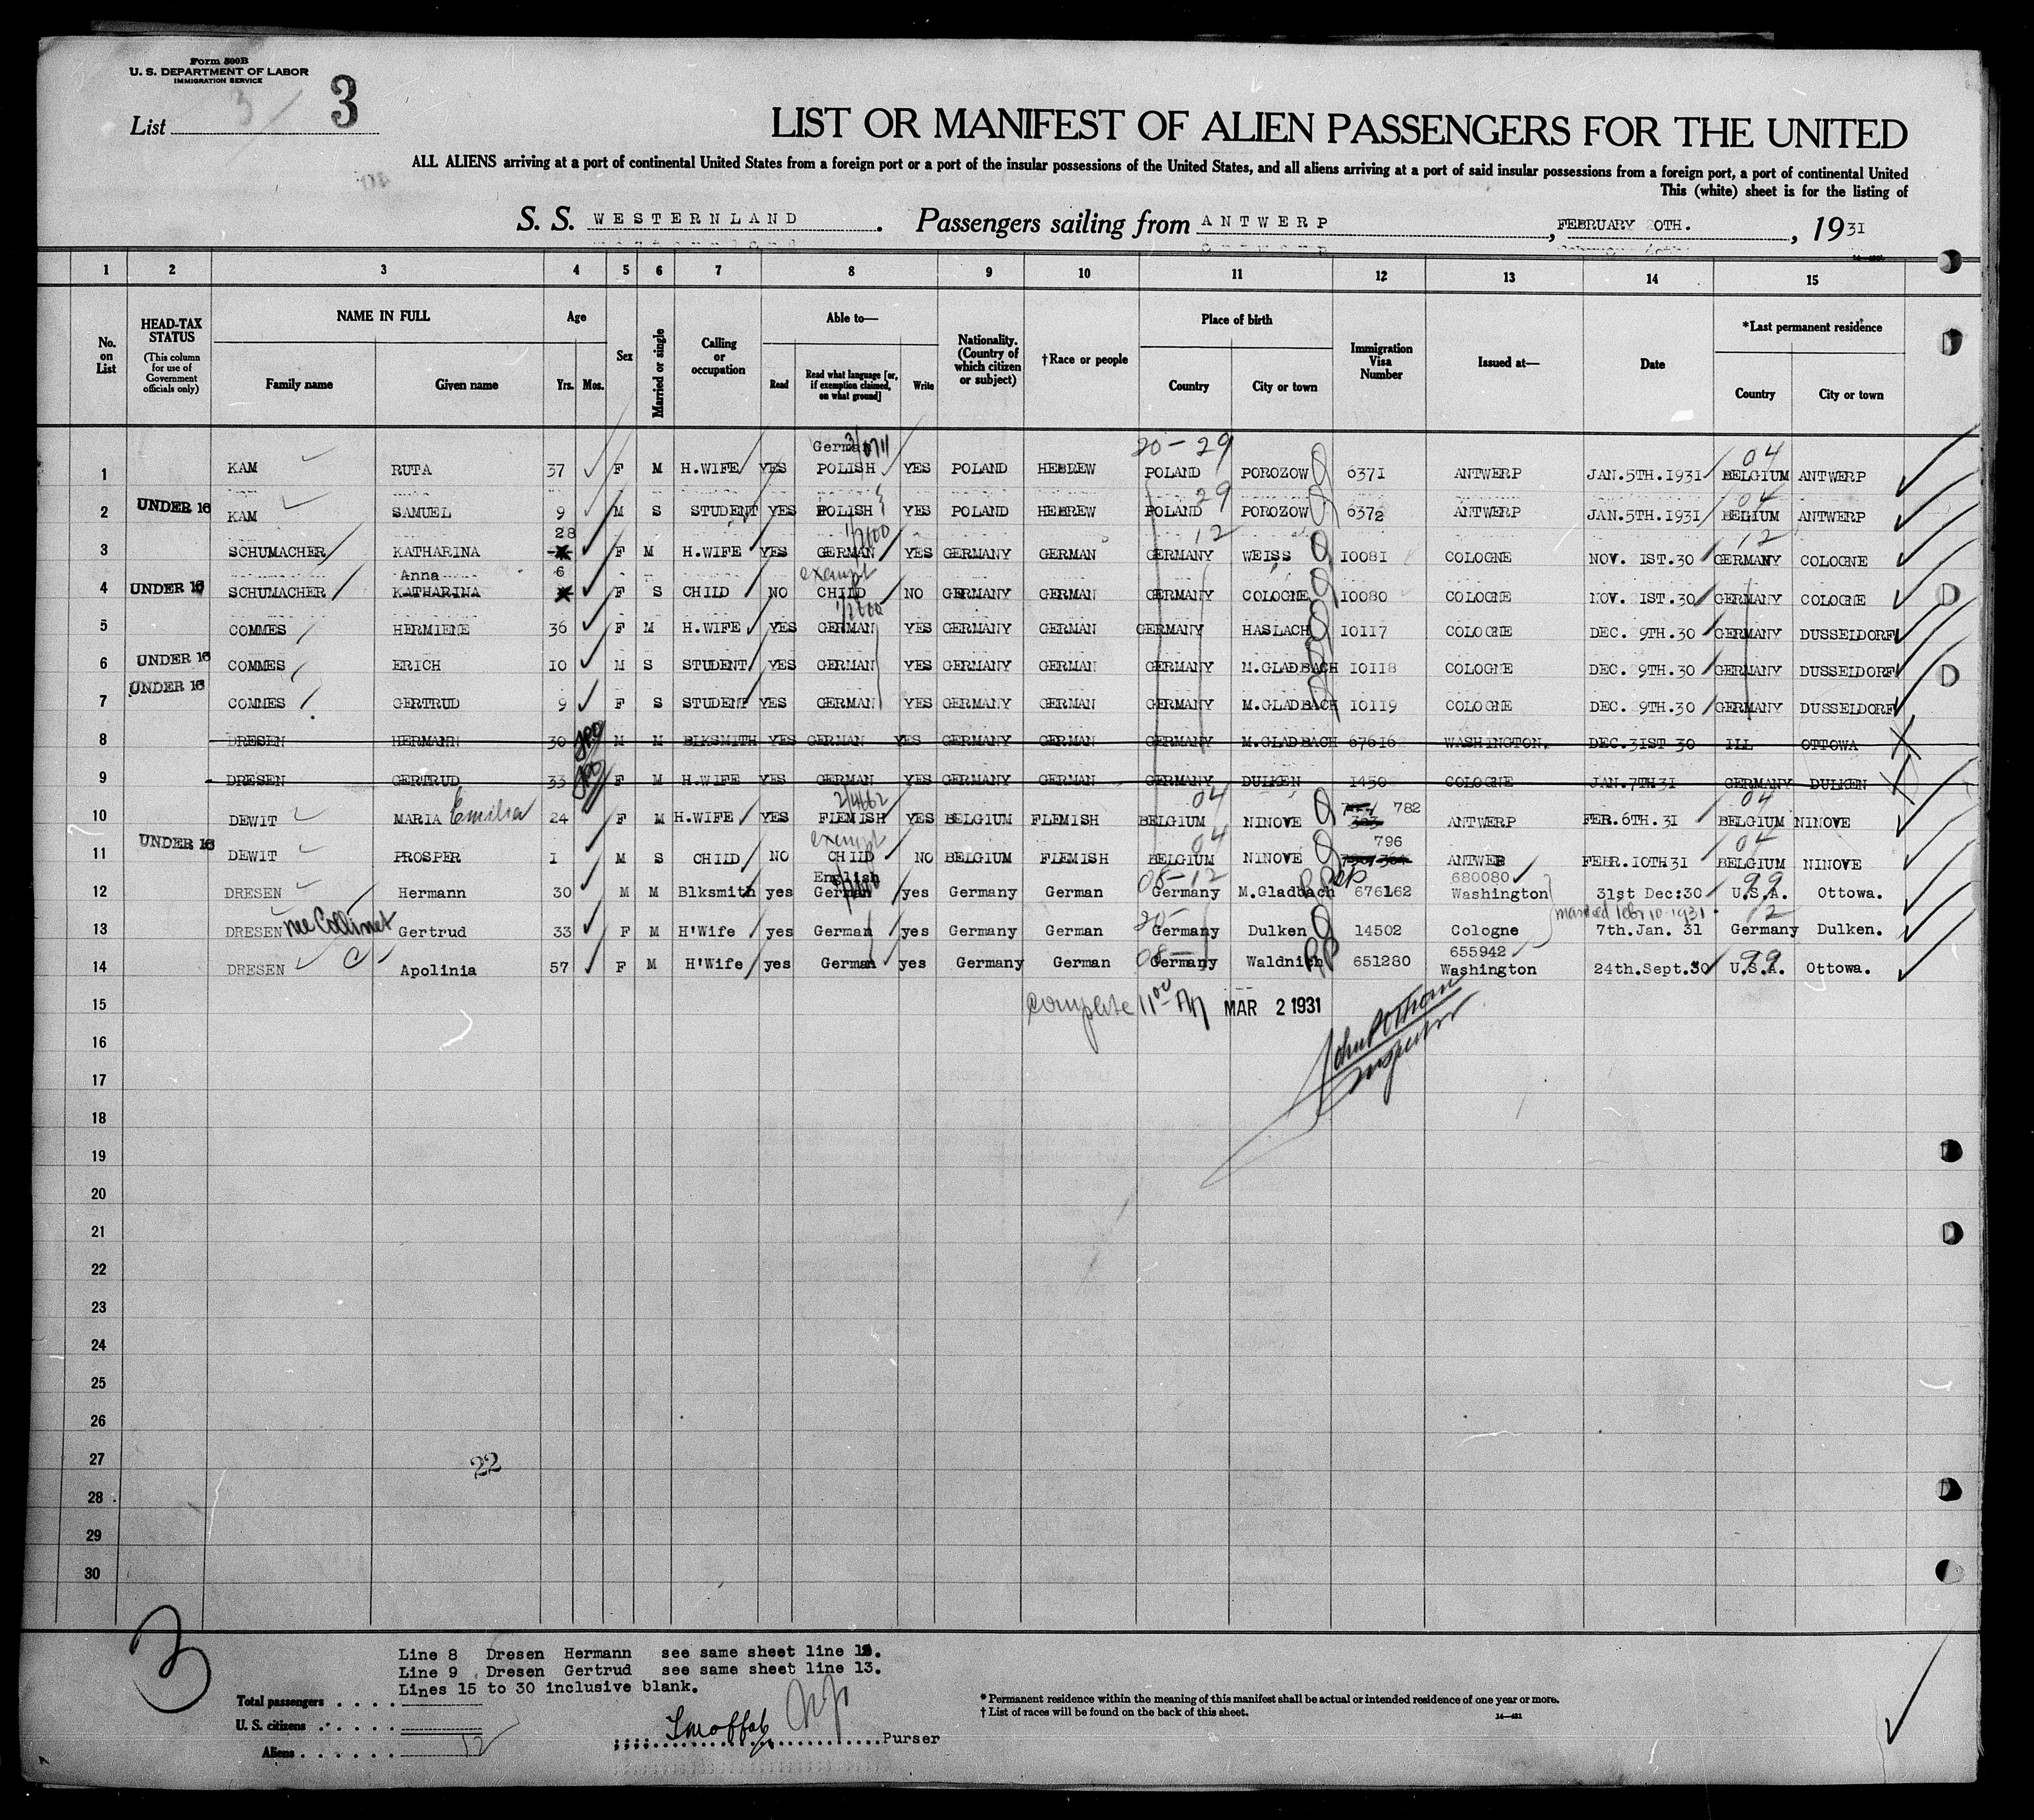 Form 500B
U. S. DEPARTMENT OF LABOR
IMMIGRATION SERVICE
List 3 3
LIST OR MANIFEST OF ALIEN PASSENGERS FOR THE UNITED
ALL ALIENS arriving at a port of continental United States from a foreign port or a port of the insular possessions of the United States, and all aliens arriving at a port of said insular possessions from a foreign port, a port of continental United
This (white) sheet is for the listing of
S. S. WESTERNLAND. Passengers sailing from ANTWERP, FEBRUARY 20TH., 1931
1 2 3 4 5 6 7 8 9 10 11 12 13 14 15
No. on List
HEAD-TAX STATUS (This column for use of Government officials only)
NAME IN FULL
Family name Given name
Age
Yrs. Mos.
Sex
Married or single
Calling or occupation
Able to—
Read
Read what language [or, if exemption claimed, on what ground]
Write
Nationality. (Country of which citizen or subject)
†Race or people
Place of birth
Country City or town
Immigration Visa Number
Issued at—
Date
*Last permanent residence
Country City or town
German 20-29 04
1 KAM RUTA 37 F M H.WIFE YES POLISH YES POLAND HEBREW POLAND POROZOW 6371 ANTWERP JAN.5TH.1931 BELGIUM ANTWERP
29 04
2 UNDER 16 KAM SAMUEL 9 M S STUDENT YES POLISH YES POLAND HEBREW POLAND POROZOW 6372 ANTWERP JAN.5TH.1931 BELGIUM ANTWERP
28 12 12
3 SCHUMACHER KATHARINA F M H.WIFE YES GERMAN YES GERMANY GERMAN GERMANY WEISS 10081 COLOGNE NOV. 1ST.30 GERMANY COLOGNE
Anna 6 exempt
4 UNDER 16 SCHUMACHER KATHARINA F S CHILD NO CHILD NO GERMANY GERMAN GERMANY COLOGNE 10080 COLOGNE NOV. 1ST.30 GERMANY COLOGNE
5 COMMES HERMIENE 36 F M H.WIFE YES GERMAN YES GERMANY GERMAN GERMANY HASLACH 10117 COLOGNE DEC. 9TH.30 GERMANY DUSSELDORF
6 UNDER 16 COMMES ERICH 10 M S STUDENT YES GERMAN YES GERMANY GERMAN GERMANY M.GLADBACH 10118 COLOGNE DEC. 9TH.30 GERMANY DUSSELDORF
7 UNDER 16 COMMES GERTRUD 9 F S STUDENT YES GERMAN YES GERMANY GERMAN GERMANY M.GLADBACH 10119 COLOGNE DEC. 9TH.30 GERMANY DUSSELDORF
8 DRESEN HERMANN 30 M M BLKSMITH YES GERMAN YES GERMANY GERMAN GERMANY M.GLADBACH 67616 WASHINGTON. DEC.31ST 30 ILL OTTOWA
9 DRESEN GERTRUD 33 F M H.WIFE YES GERMAN YES GERMANY GERMAN GERMANY DULKEN 1450 COLOGNE JAN.7TH31 GERMANY DULKEN
04 782 04
10 DEWIT MARIA Emilia 24 F M H.WIFE YES FLEMISH YES BELGIUM FLEMISH BELGIUM NINOVE ANTWERP FEB.6TH.31 BELGIUM NINOVE
exempt 04 796 04
11 UNDER 16 DEWIT PROSPER 1 M S CHILD NO CHILD NO BELGIUM FLEMISH BELGIUM NINOVE ANTWER FEBR.10TH31 BELGIUM NINOVE
English 08-12 680080 99
12 DRESEN Hermann 30 M M Blksmith yes German yes Germany German Germany M.Gladbach 676162 Washington 31st Dec:30 U.S.A. Ottowa.
married Feb 10-1931. 12
13 DRESEN nee Collinet Gertrud 33 F M H'Wife yes German yes Germany German Germany Dulken 14502 Cologne 7th.Jan. 31 Germany Dulken.
655942 99
14 DRESEN Apolinia 57 F M H'Wife yes German yes Germany German Germany Waldnich 651280 Washington 24th.Sept.30 U.S.A. Ottowa.
15 complete 11 00 AM MAR 2 1931
16
Inspector
17
18
19
20
21
22
23
24
25
26
27 22
28
29
30
3
Line 8 Dresen Hermann see same sheet line 12.
Line 9 Dresen Gertrud see same sheet line 13.
Lines 15 to 30 inclusive blank.
Total passengers
U. S. citizens
Aliens 12
Purser
* Permanent residence within the meaning of this manifest shall be actual or intended residence of one year or more.
† List of races will be found on the back of this sheet.